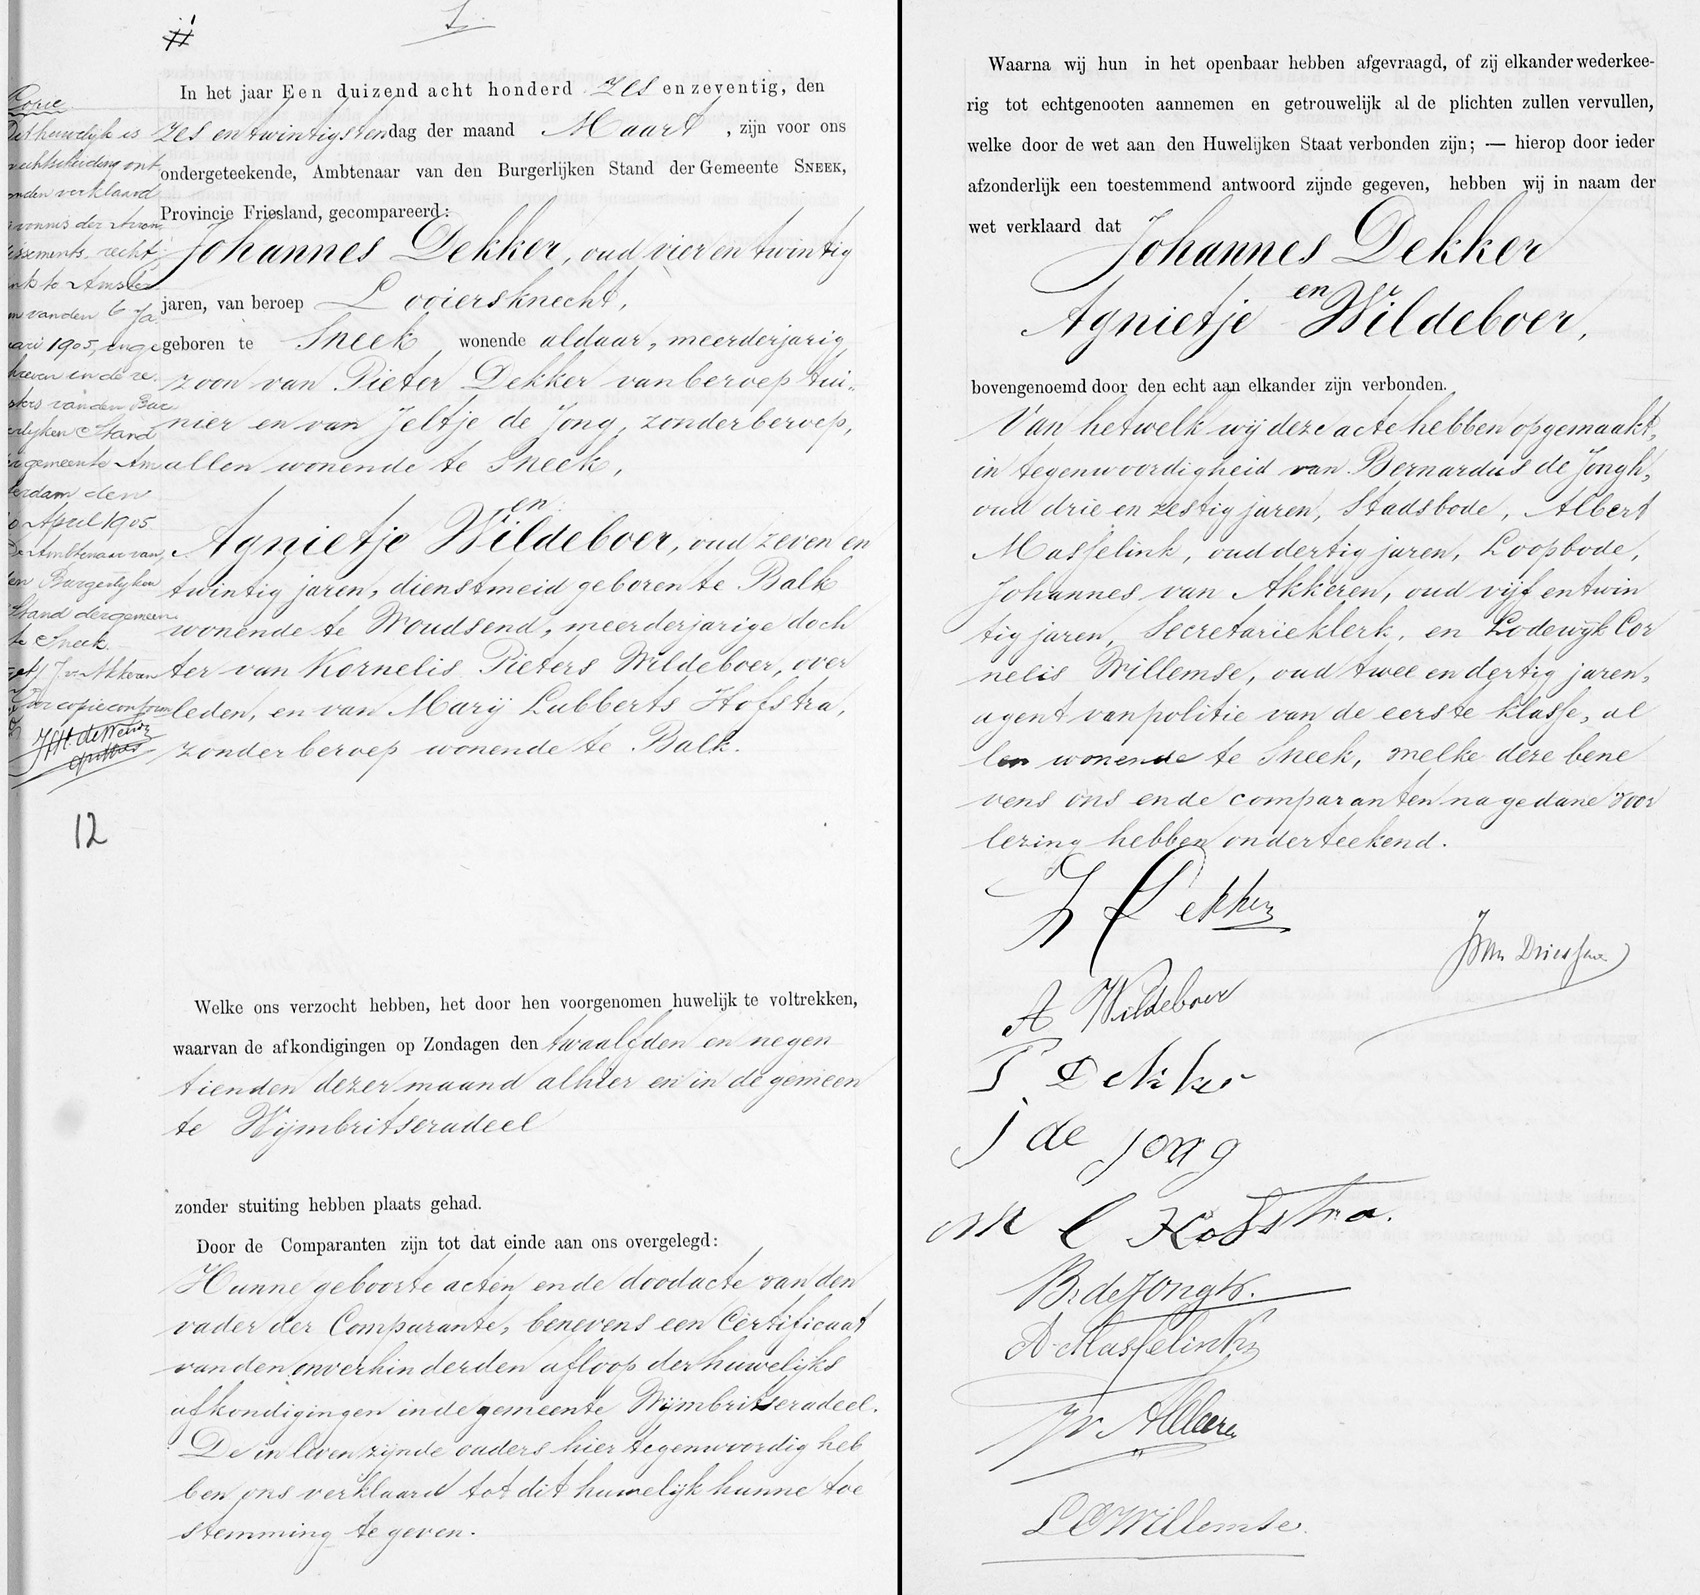 Copie
Dit huwelijk is
echtscheiding ont
onden verklaard
vonnis der Arron
issements recht
nk te Amster
m van den 6 Ja
ari 1905, inge
hreven in de re
sters van den Bur
erlijken Stand
er gemeente Am
terdam den
April 1905
De Ambtenaar van
den Burgerlijken
Stand der gemeen
te Sneek.
get/ J. v. Akkeren
Voor copie conform
12
1.
In het jaar Een duizend acht honderd zes en zeventig, den
zes en twintigsten dag der maand Maart, zijn voor ons
ondergeteekende, Ambtenaar van den Burgerlijken Stand der Gemeente SNEEK,
Provincie Friesland, gecompareerd:
Johannes Dekker, oud vier en twintig
jaren, van beroep Looiersknecht,
geboren te Sneek wonende aldaar, meerderjarig
zoon van Pieter Dekker van beroep tui-
nier en van Jeltje de Jong, zonder beroep,
allen wonende te Sneek,
en
Agnietje Wildeboer, oud zeven en
twintig jaren, dienstmeid geboren te Balk
wonende te Woudsend, meerderjarige doch
ter van Kornelis Pieters Wildeboer, over
leden, en van Marij Lubberts Hofstra,
zonder beroep wonende te Balk.
Welke ons verzocht hebben, het door hen voorgenomen huwelijk te voltrekken,
waarvan de afkondigingen op Zondagen den twaalfden en negen
tienden dezer maand alhier en in de gemeen
te Wijmbritseradeel
zonder stuiting hebben plaats gehad.
Door de Comparanten zijn tot dat einde aan ons overgelegd:
Hunne geboorte acten en de doodacte van den
vader der Comparante, benevens een Certificaat
van den onverhinderden afloop der huwelijks
afkondigingen in de gemeente Wijmbritseradeel.
De in leven zijnde ouders hier tegenwoordig heb
ben ons verklaard tot dit huwelijk hunne toe
stemming te geven.
Waarna wij hun in het openbaar hebben afgevraagd, of zij elkander wederkee-
rig tot echtgenooten aannemen en getrouwelijk al de plichten zullen vervullen,
welke door de wet aan den Huwelijken Staat verbonden zijn; — hierop door ieder
afzonderlijk een toestemmend antwoord zijnde gegeven, hebben wij in naam der
wet verklaard dat
Johannes Dekker
en
Agnietje Wildeboer,
bovengenoemd door den echt aan elkander zijn verbonden.
Van hetwelk wij deze acte hebben opgemaakt,
in tegenwoordigheid van Bernardus de Jongh,
oud drie en zestig jaren, Stadsbode, Albert
Masselink, oud dertig jaren, Loopbode,
Johannes van Akkeren, oud vijf en twin
tig jaren, Secretarieklerk, en Lodewijk Cor
nelis Willemse, oud twee en dertig jaren,
agent van politie van de eerste klasse, al
len wonende te Sneek, welke deze bene
vens ons en de comparanten na gedane voor
lezing hebben onderteekend.
J Dekker
A Wildeboer
P Dekker
J de jong
M L Hofstra.
B. de Jongh.
A. Masselink
J v Akkeren
L C Willemse.